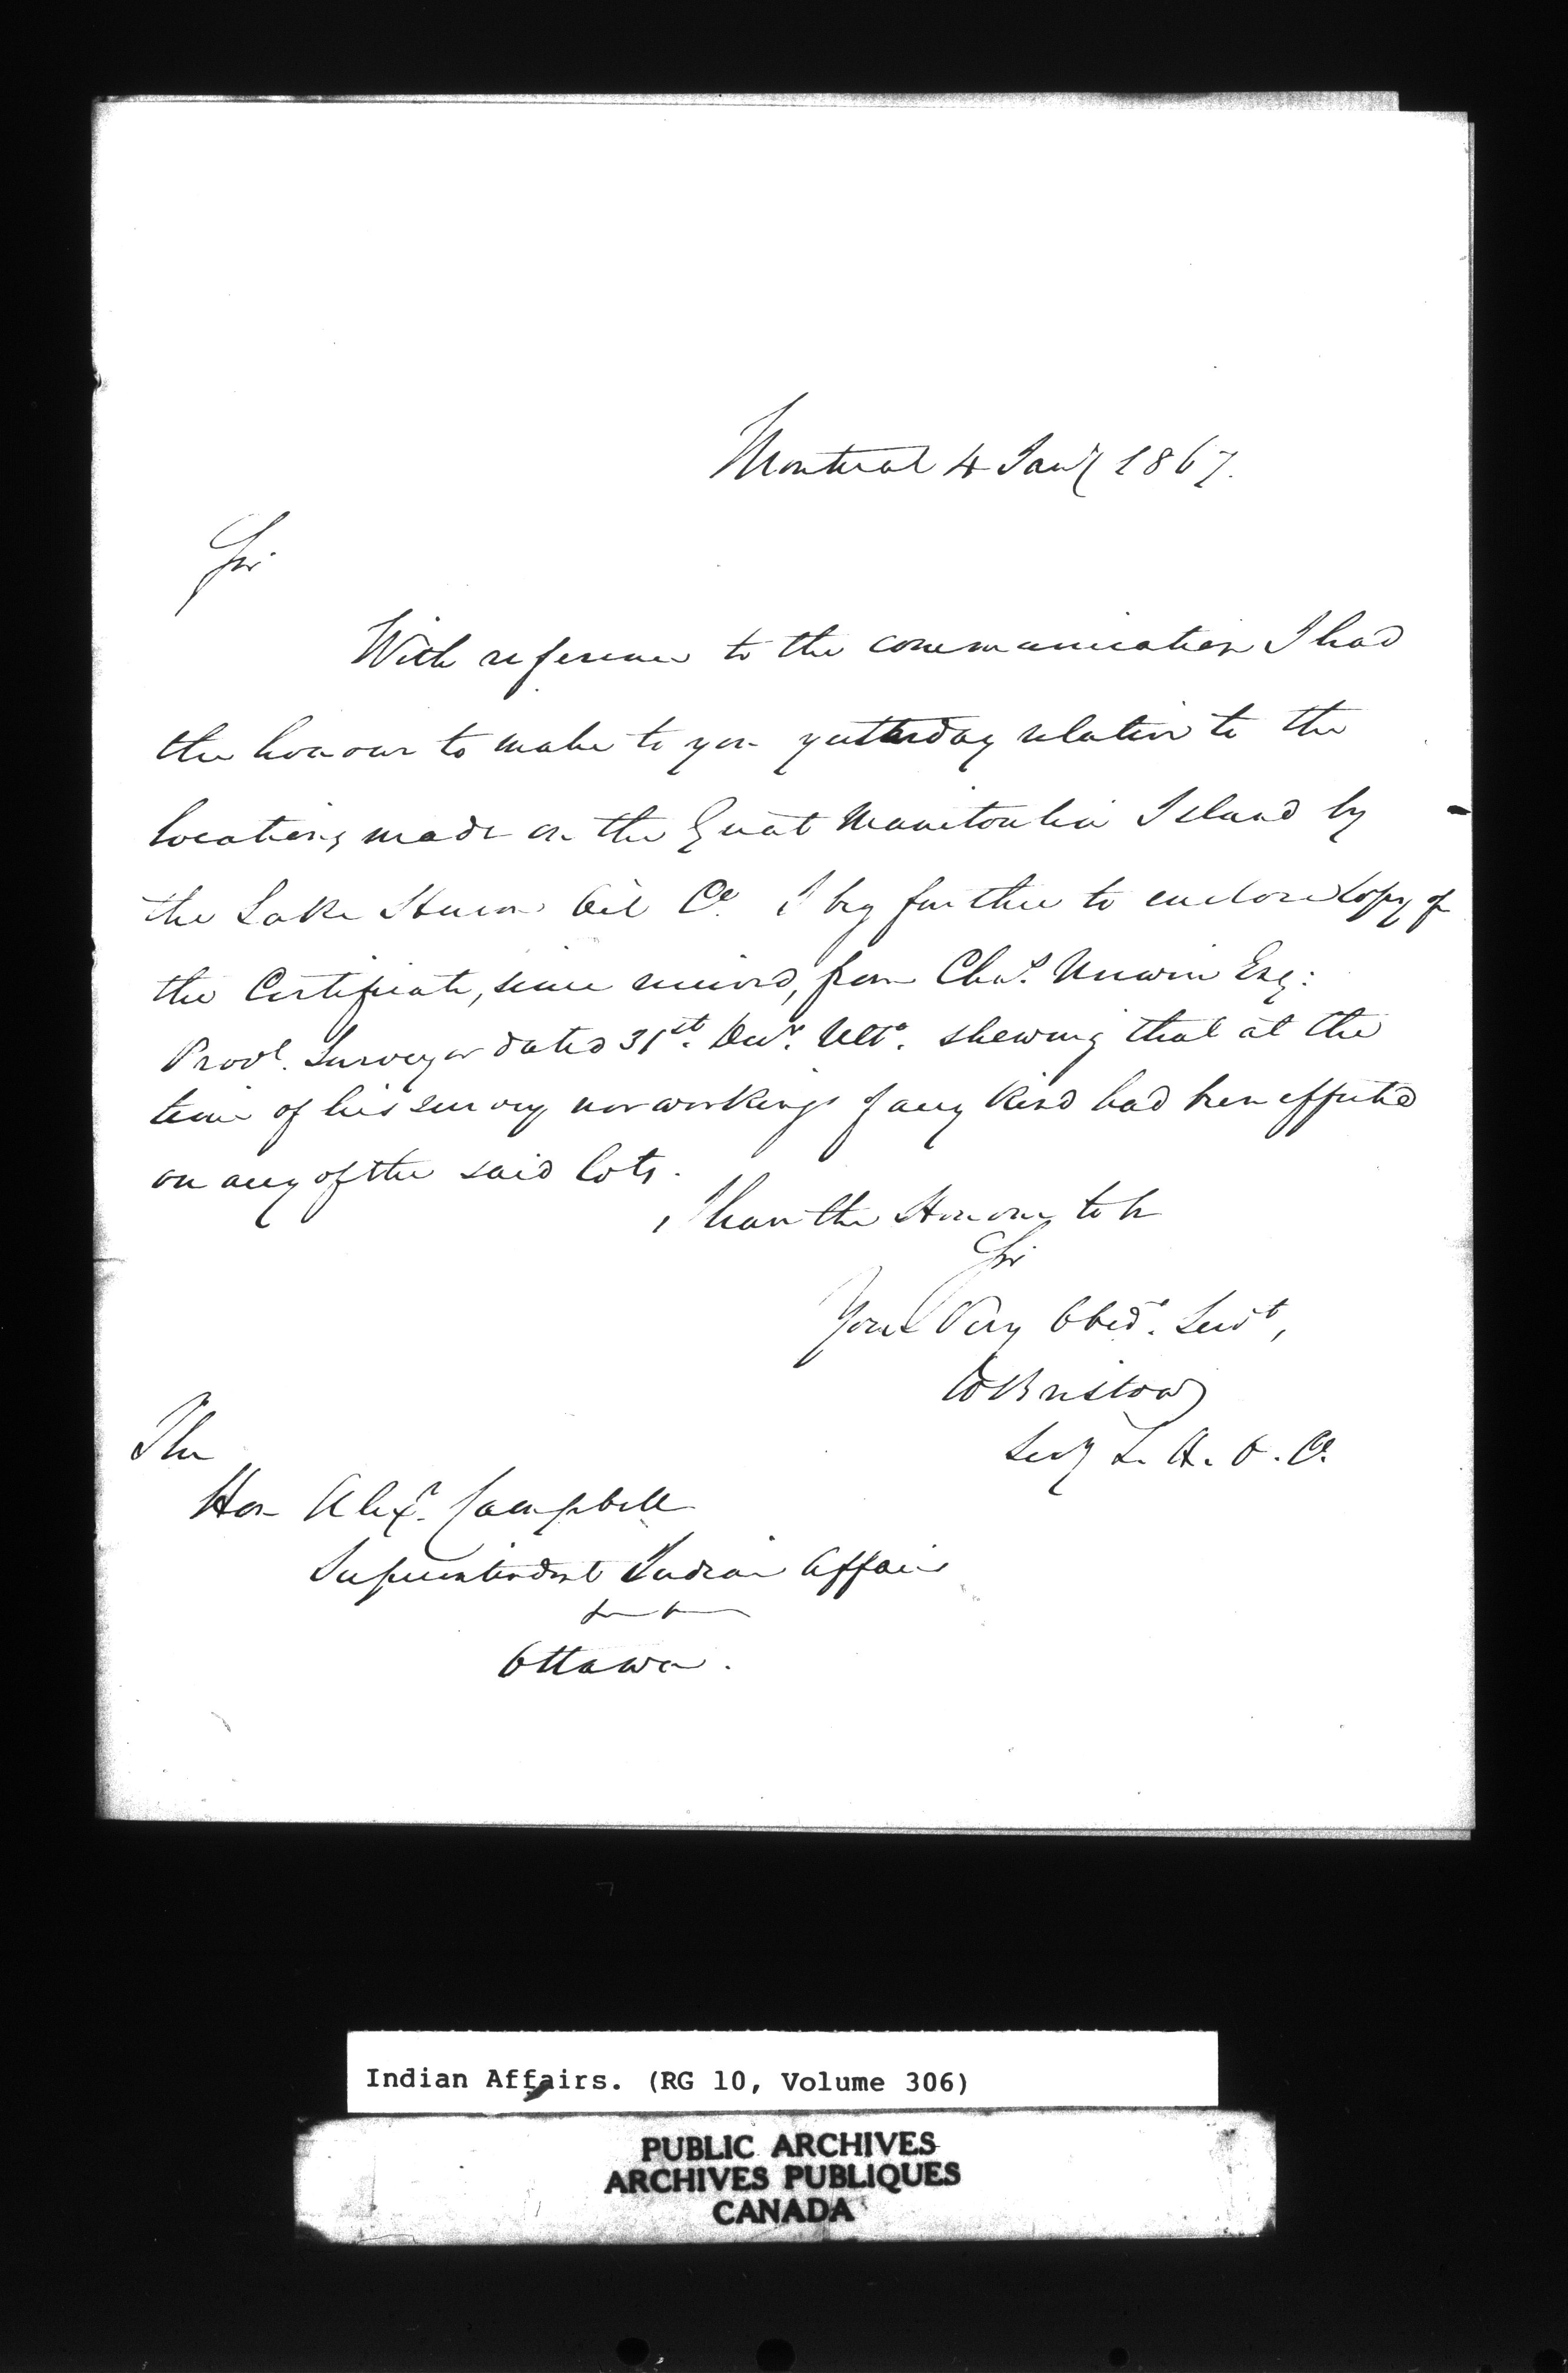 Montreal 4 Jany 1867.
Sir
With reference to the communication I had
the honour to make to you yesterday relative to the
locations made on the Great Manitoulin Island by
the Lake Huron Oil Co. I beg further to enclose copy of
the Certificate, since received, from Chas. Unwin Esq:
Provl. Surveyor dated 31st. Decr. Ulto. shewing that at the
time of his survey no workings of any kind had been effected
on any of the said lots.
I have the Honour to be
Sir
Your Very Obedt. Servt,
W Bristow
Secy L. H. O. Co.
The
Hon Alexr. Campbell
Superintendent Indian Affairs
Ottawa.
Indian Affairs. (RG 10, Volume 306)
PUBLIC ARCHIVES
ARCHIVES PUBLIQUES
CANADA